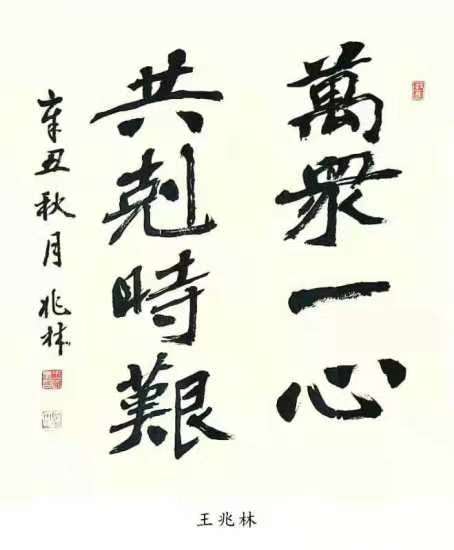 萬衆一心
共剋時艱
辛丑秋月 兆林
王兆林